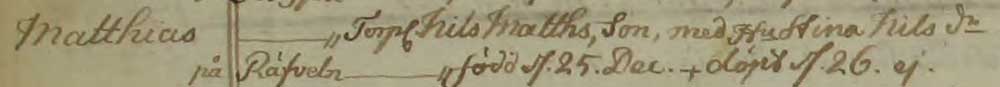 Matthias ——— „ Torp. Nils Matths, Son, med Hu Stina Nils Dr
på Råfveln ——— „ född d. 25. Dec. + döpt d. 26. ej.